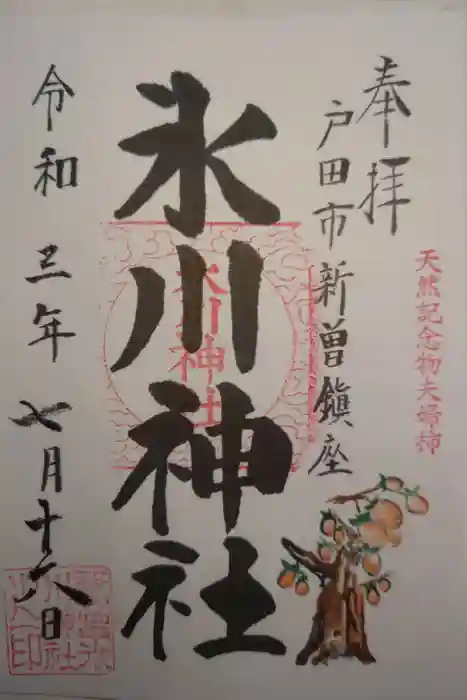 奉拝
天然記念物夫婦柿
戸田市新曽鎮座
氷川神社
氷川神社
令和三年七月十六日